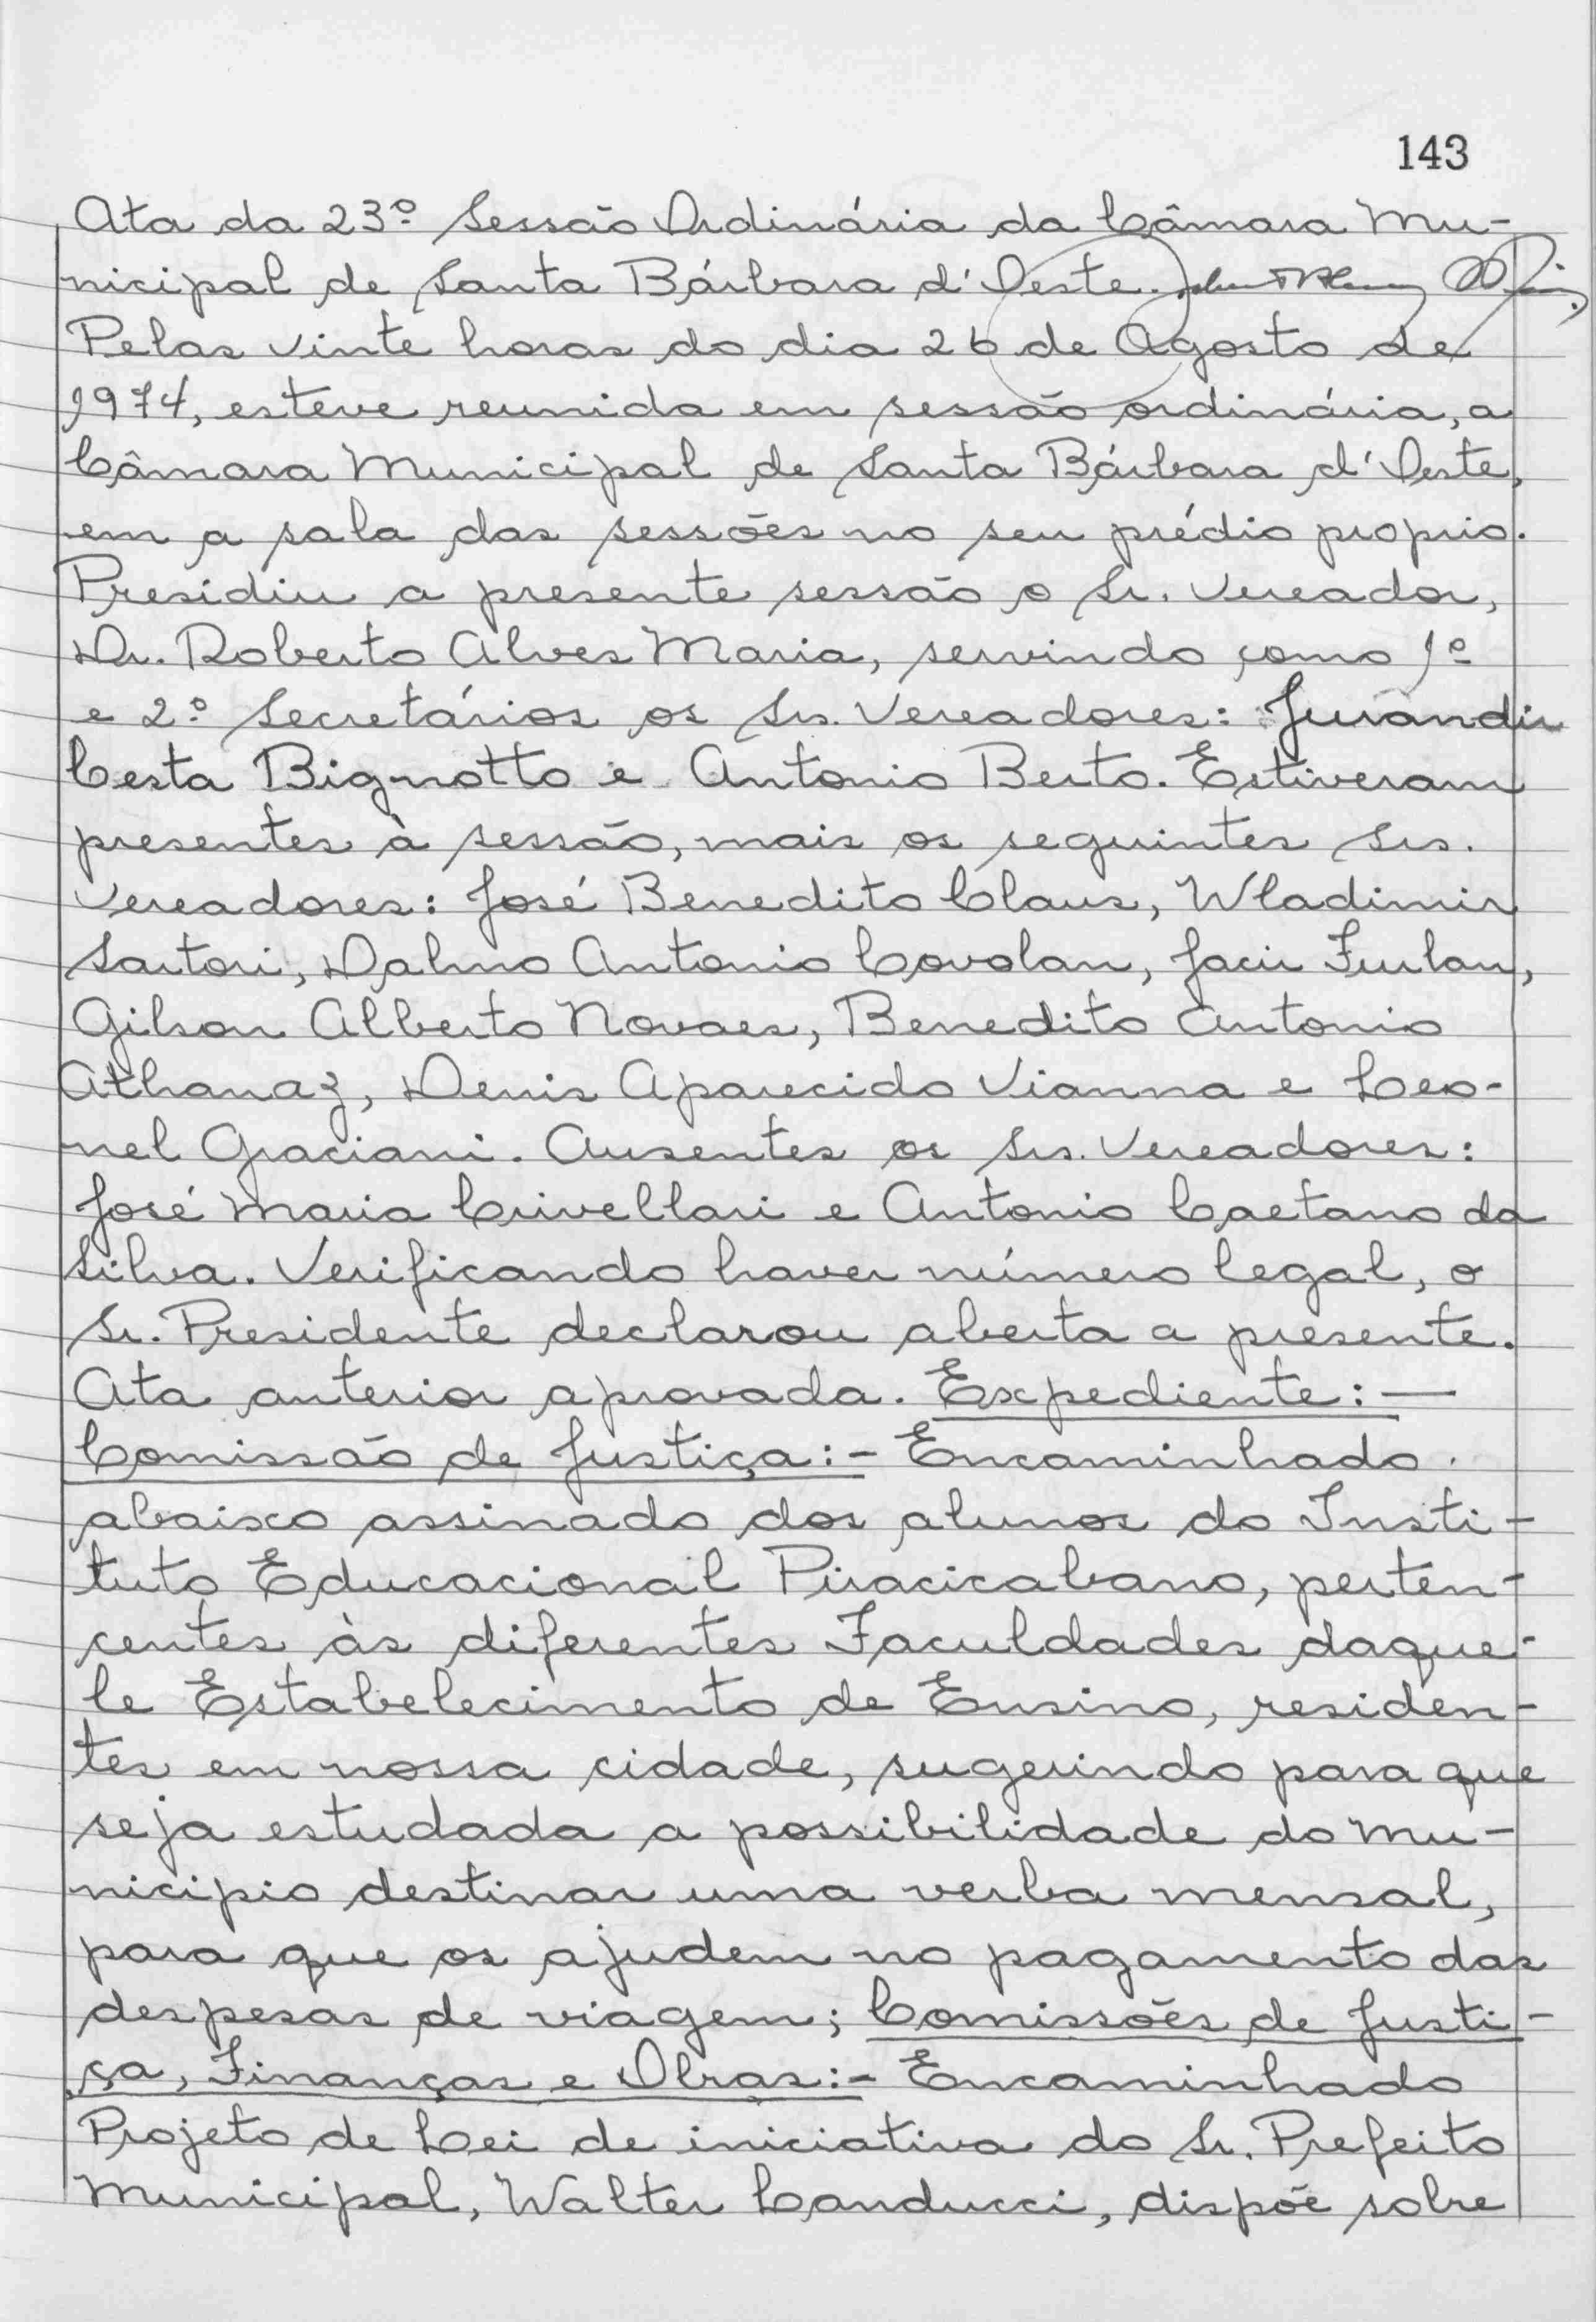 143
Ata da 23º Sessão Ordinária da Câmara Mu-
nicipal de Santa Bárbara d'Oeste.
Pelas vinte horas do dia 26 de Agosto de
1974, esteve reunida em sessão ordinária, a
Câmara Municipal de Santa Bárbara d'Oeste,
em a sala das sessões no seu prédio proprio.
Presidiu a presente sessão o Sr. Vereador,
Dr. Roberto Alves Maria, servindo como 1º
e 2º Secretários os Srs. Vereadores: Jurandir
Cesta Bignotto e Antonio Berto. Estiveram
presentes à sessão, mais os seguintes Srs.
Vereadores: José Benedito Claus, Wladimir
Sartori, Dalmo Antonio Covolan, Jacir Furlan,
Gilson Alberto Novaes, Benedito Antonio
Athanaz, Denis Aparecido Vianna e Leo-
nel Graciani. Ausentes os Srs. Vereadores:
José Maria Crivellari e Antonio Caetano da
Silva. Verificando haver número legal, o
Sr. Presidente declarou aberta a presente.
Ata anterior aprovada. Expediente: —
Comissão de Justiça:- Encaminhado
abaixo assinado dos alunos do Insti-
tuto Educacional Piracicabano, perten-
centes às diferentes Faculdades daque-
le Estabelecimento de Ensino, residen-
tes em nossa cidade, sugerindo para que
seja estudada a possibilidade do Mu-
nicipio destinar uma verba mensal,
para que os ajudem no pagamento das
despesas de viagem; Comissões de Justi-
ça, Finanças e Obras:- Encaminhado
Projeto de Lei de iniciativa do Sr. Prefeito
Municipal, Walter Landucci, dispõe sobre